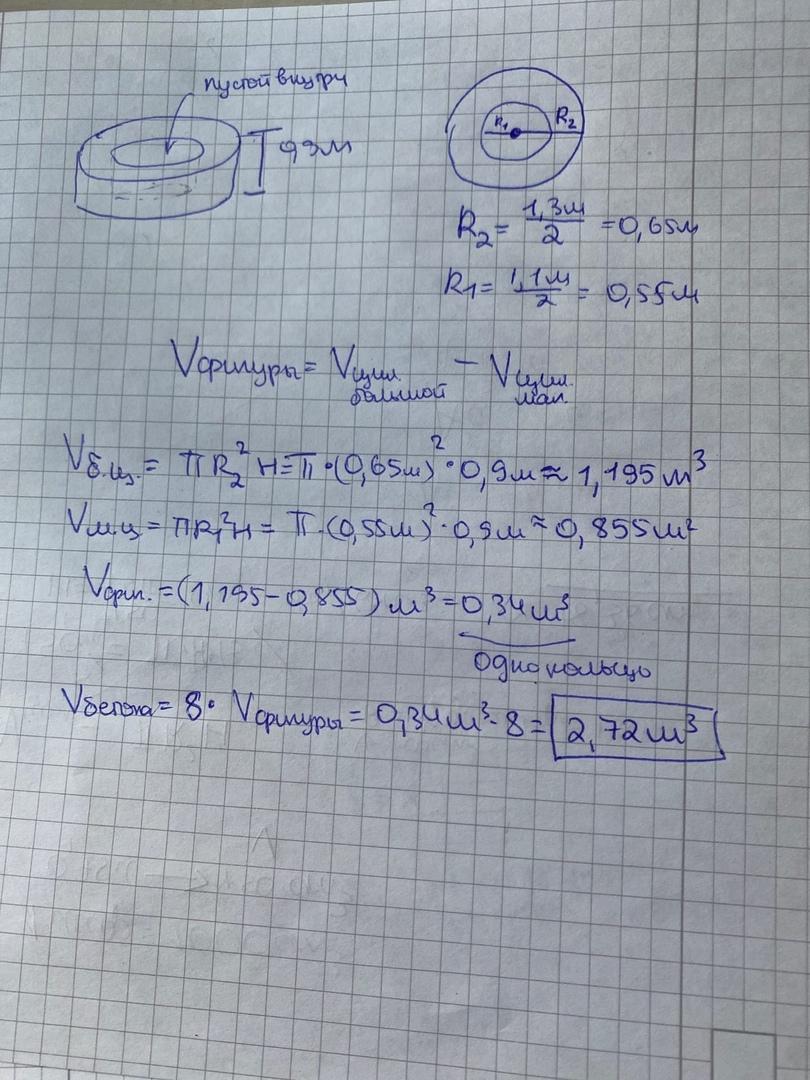 пустой внутри
0,9м
R₁ R₂
R₂ = 1,3м/2 = 0,65м
R1 = 1,1м/2 = 0,55м
Vфигуры = Vцил. большой − Vцил. мал.
Vб.ц. = πR₂²H = π·(0,65м)²·0,9м ≈ 1,195м³
Vм.ц = πR₁²H = π·(0,55м)²·0,9м ≈ 0,855м²
Vфиг. = (1,195−0,855) м³ = 0,34м³
одно кольцо
Vбетона = 8· Vфигуры = 0,34м³·8 = 2,72м³